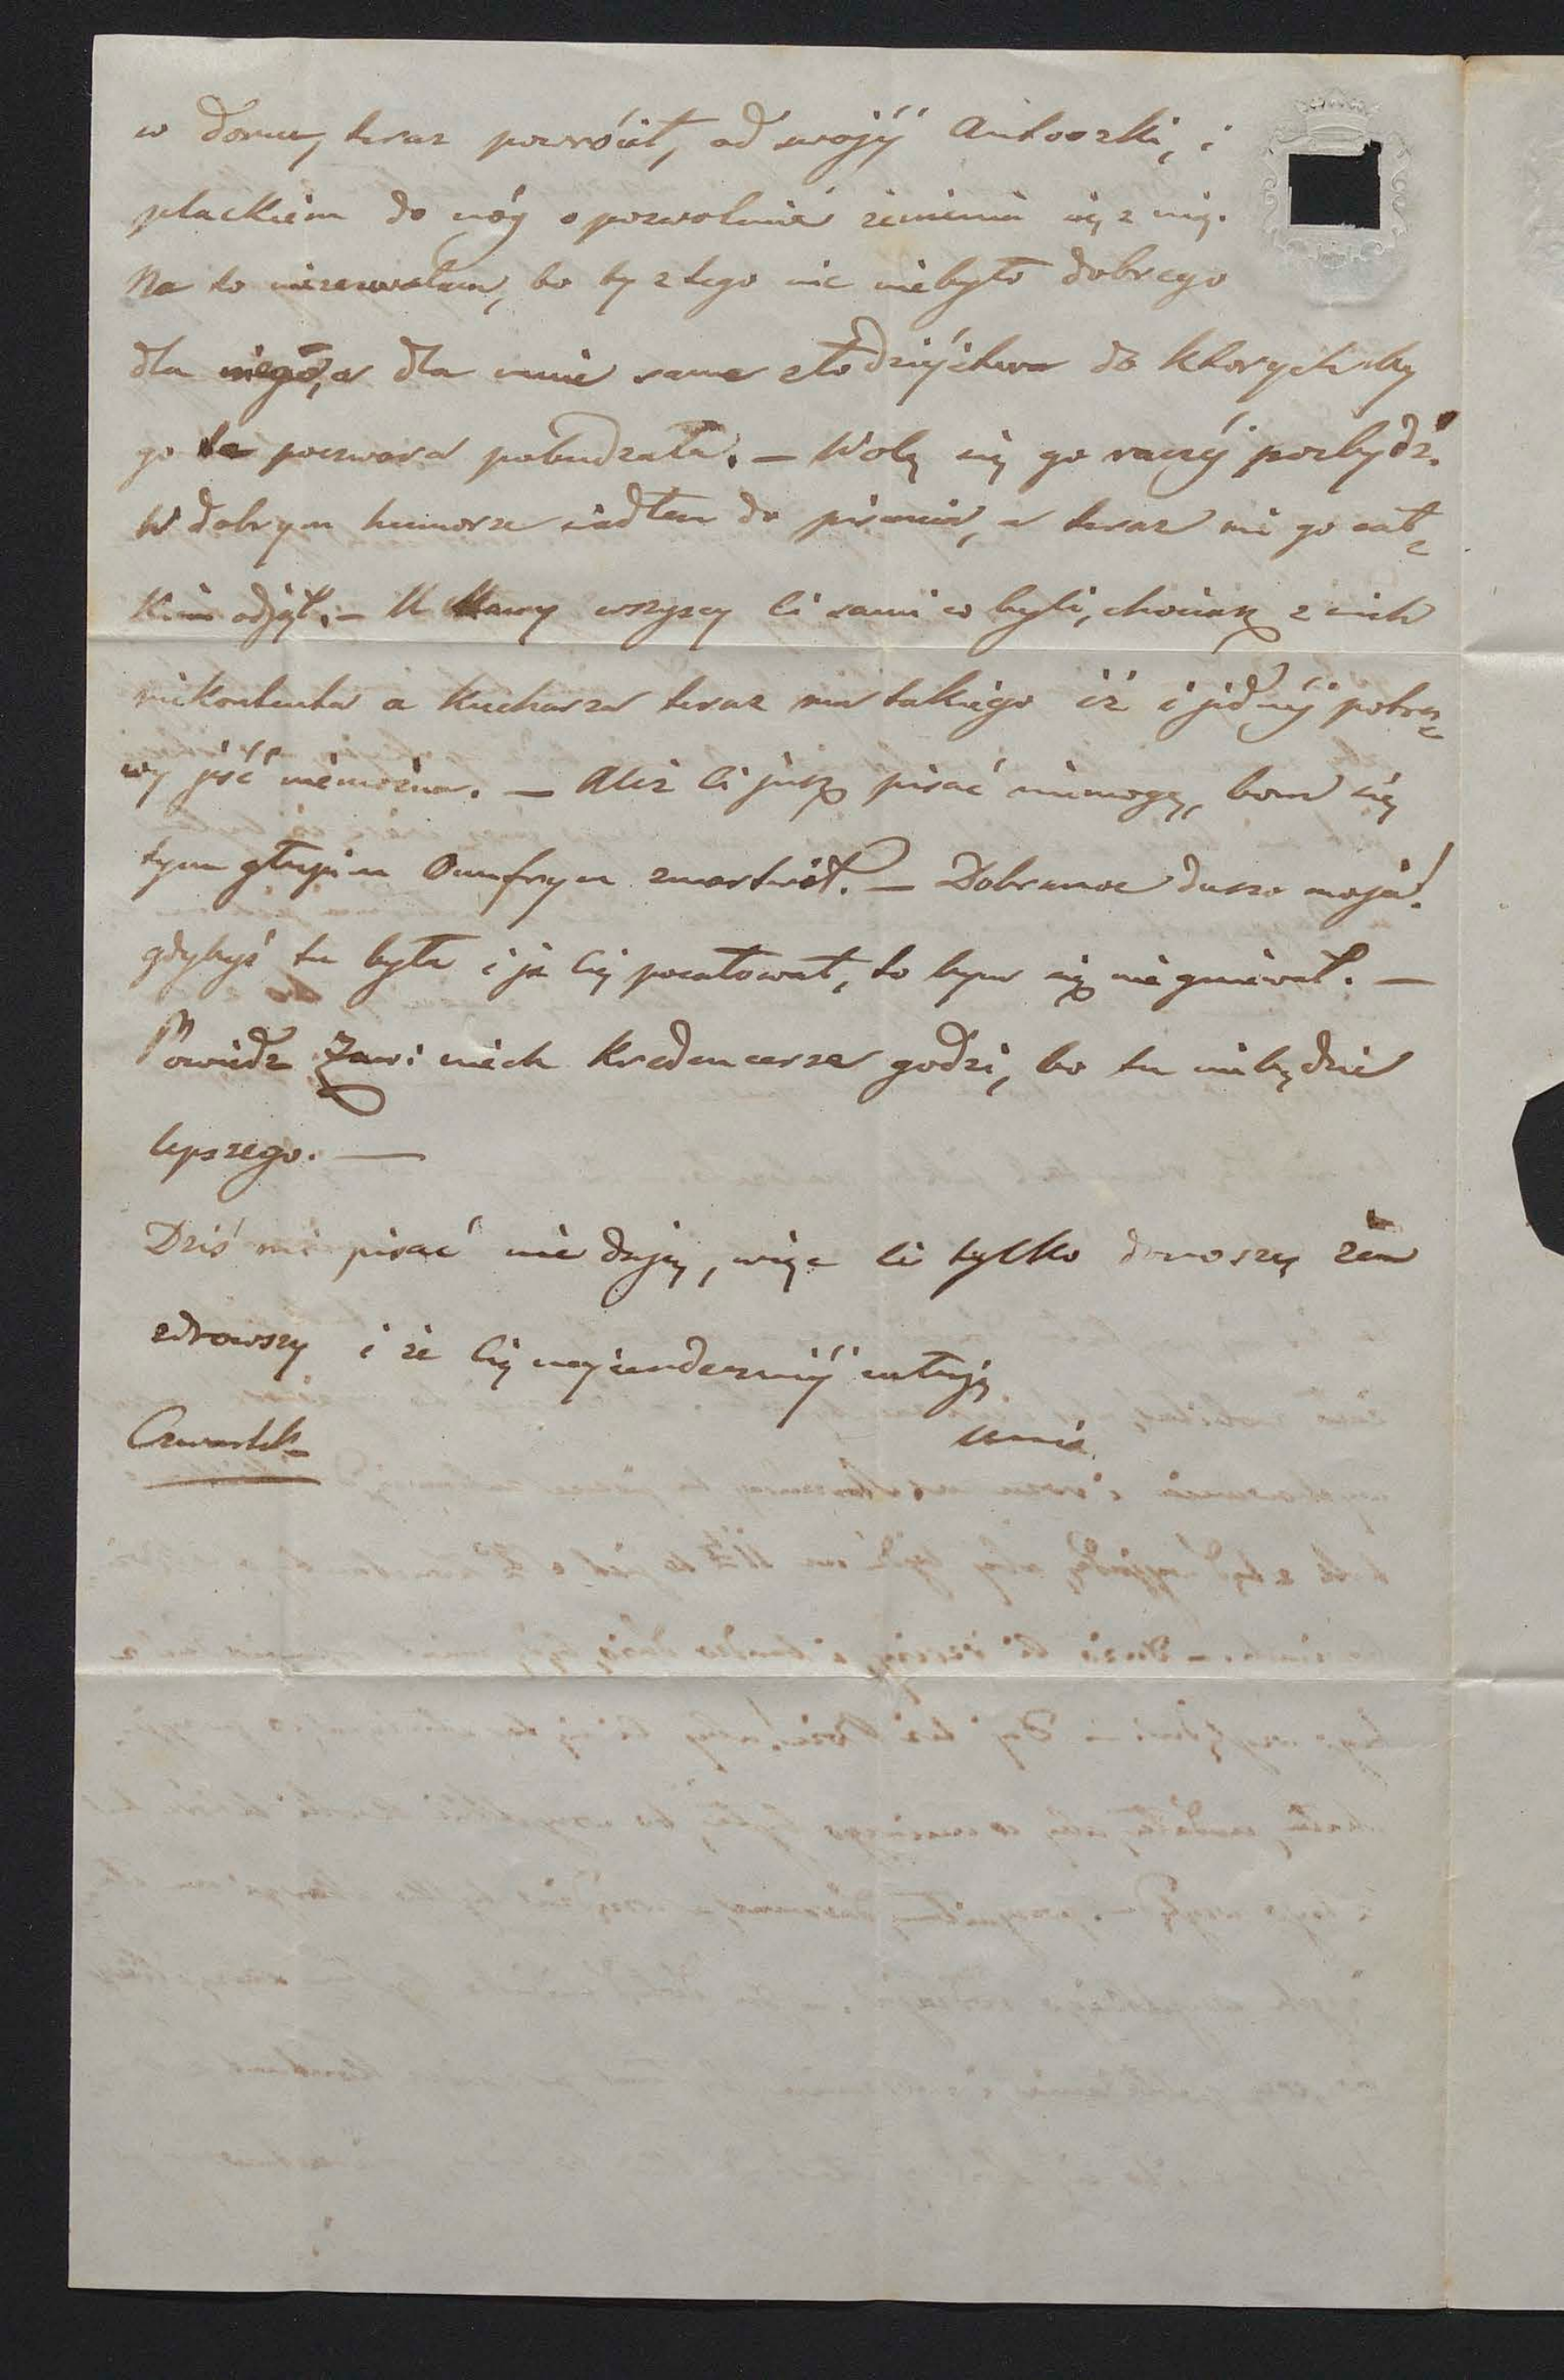 w domu, teraz powrócił, od swojéj Antoszki, i
plackiem do nóg o pozwolenié żenienia się z nią.
Na to niezezwalam, bo by z tego nic niebyło dobrego
dla niego, a dla mnie same złodziéjstwa do ktorychby
go ta poczwara pobudzała. – Wolę się go raczéj pozbydź.
W dobrym humorze siadłem do pisania, a teraz mi go cał=
kiem odjął. – U Mamy wszyscy ci sami co byli, chociaż z nich
niekontenta a Kucharza teraz ma takiego iż i jednéj potra=
wy jeść niemożna. – Ależ Ci już pisać niemogę, bom się
tym głupim Onufrym zmartwił. – Dobranoc duszo moja!
gdybyś tu była i ja Cię pocałował, to bym się nie gniewał. –
Powiedz niech Kredencerza godzi, bo tu niebędzie
lepszego. –
Dziś mi pisać nie dają, więc Ci tylko donoszę żem
zdrowszy i że Cię najserdeczniéj całuję
Czwartek